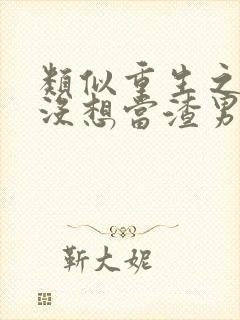 類似重生之
沒想當渣男
靳大妮